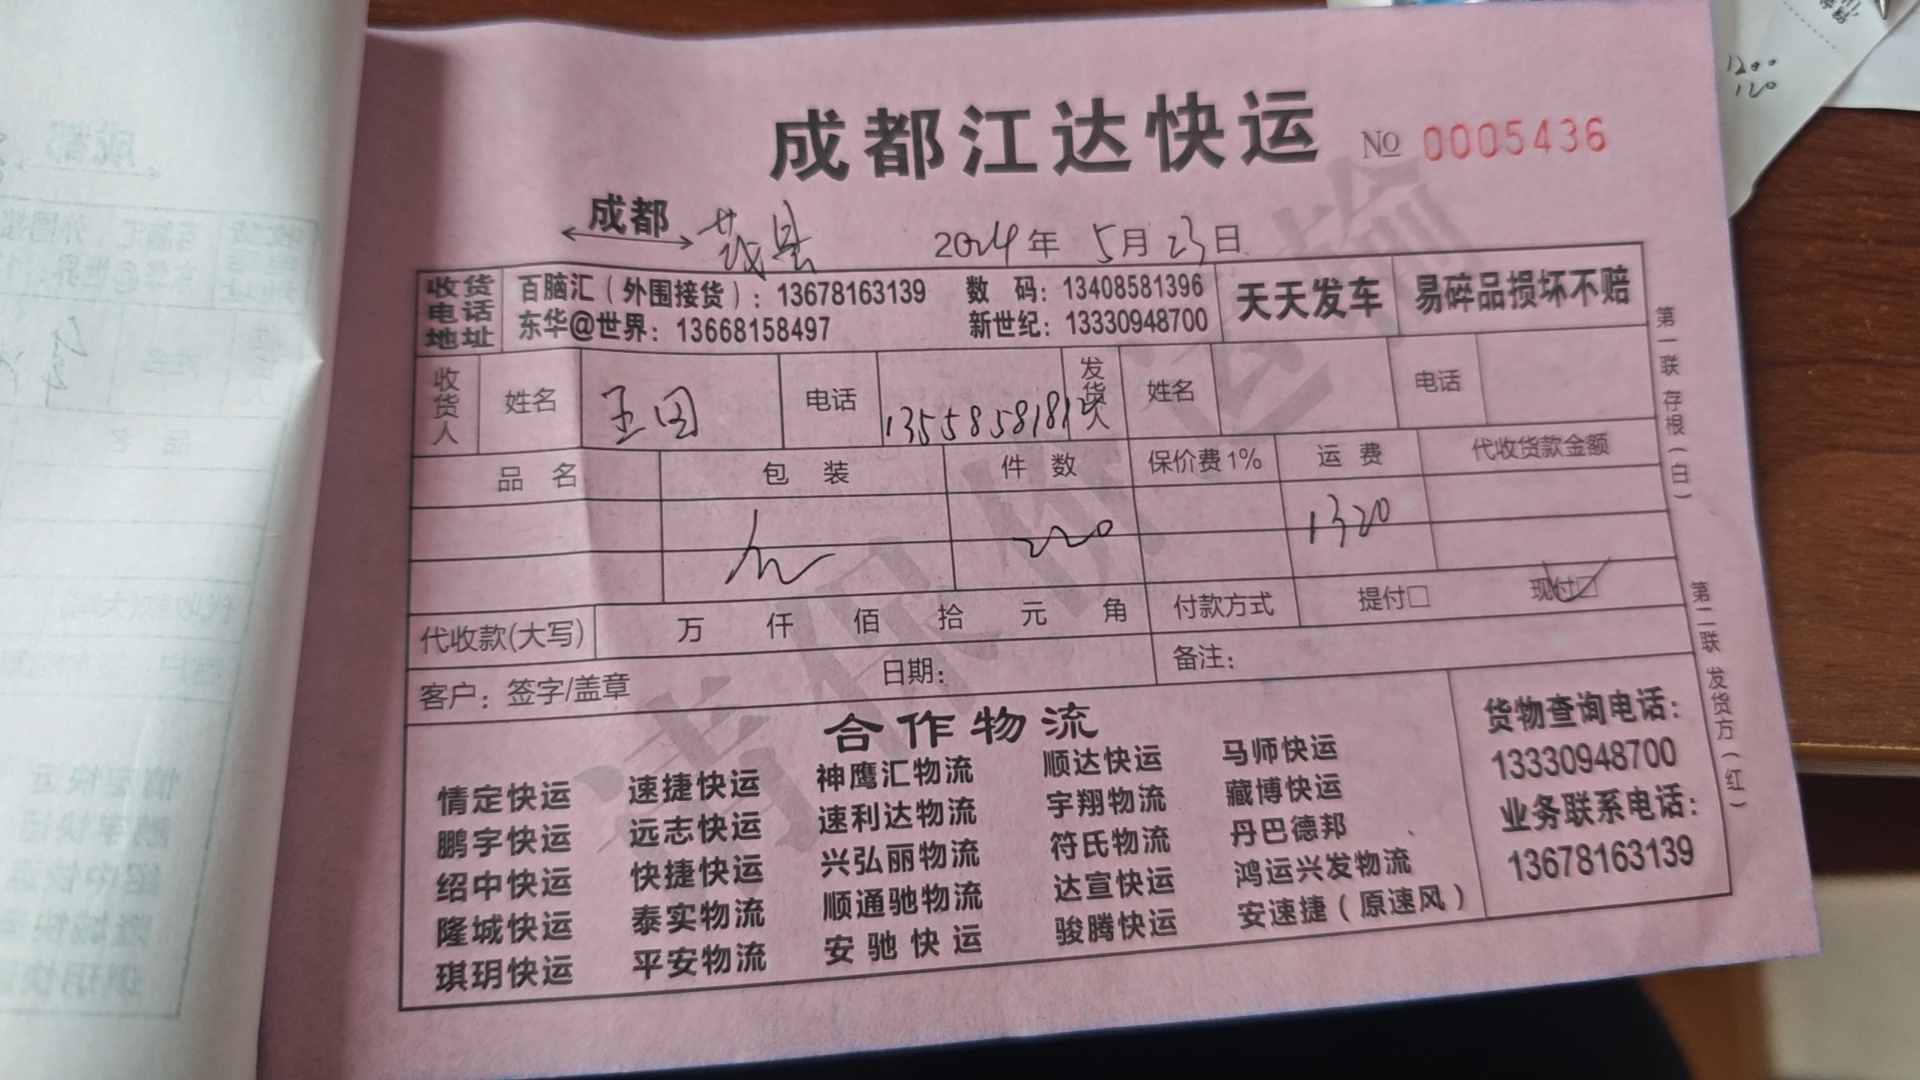 成都江达快运 No 0005436
成都 茂县 2024年 5月23日
收货电话地址 百脑汇（外围接货）: 13678163139 数 码: 13408581396 天天发车 易碎品损坏不赔
东华@世界: 13668158497 新世纪: 13330948700
收货人 姓名 电话 发货人 姓名 电话
品 名 包 装 件 数 保价费1% 运 费 代收货款金额
220 1320
代收款(大写) 万 仟 佰 拾 元 角 付款方式 提付□ 现付□
客户: 签字/盖章 日期: 备注:
合作物流
情定快运 速捷快运 神鹰汇物流 顺达快运 马师快运
鹏宇快运 远志快运 速利达物流 宇翔物流 藏博快运
绍中快运 快捷快运 兴弘丽物流 符氏物流 丹巴德邦
隆城快运 泰实物流 顺通驰物流 达宣快运 鸿运兴发物流
琪玥快运 平安物流 安驰快运 骏腾快运 安速捷（原速风）
货物查询电话:
13330948700
业务联系电话:
13678163139
第一联 存根（白）
第二联 发货方（红）
请保价运输
1200
120